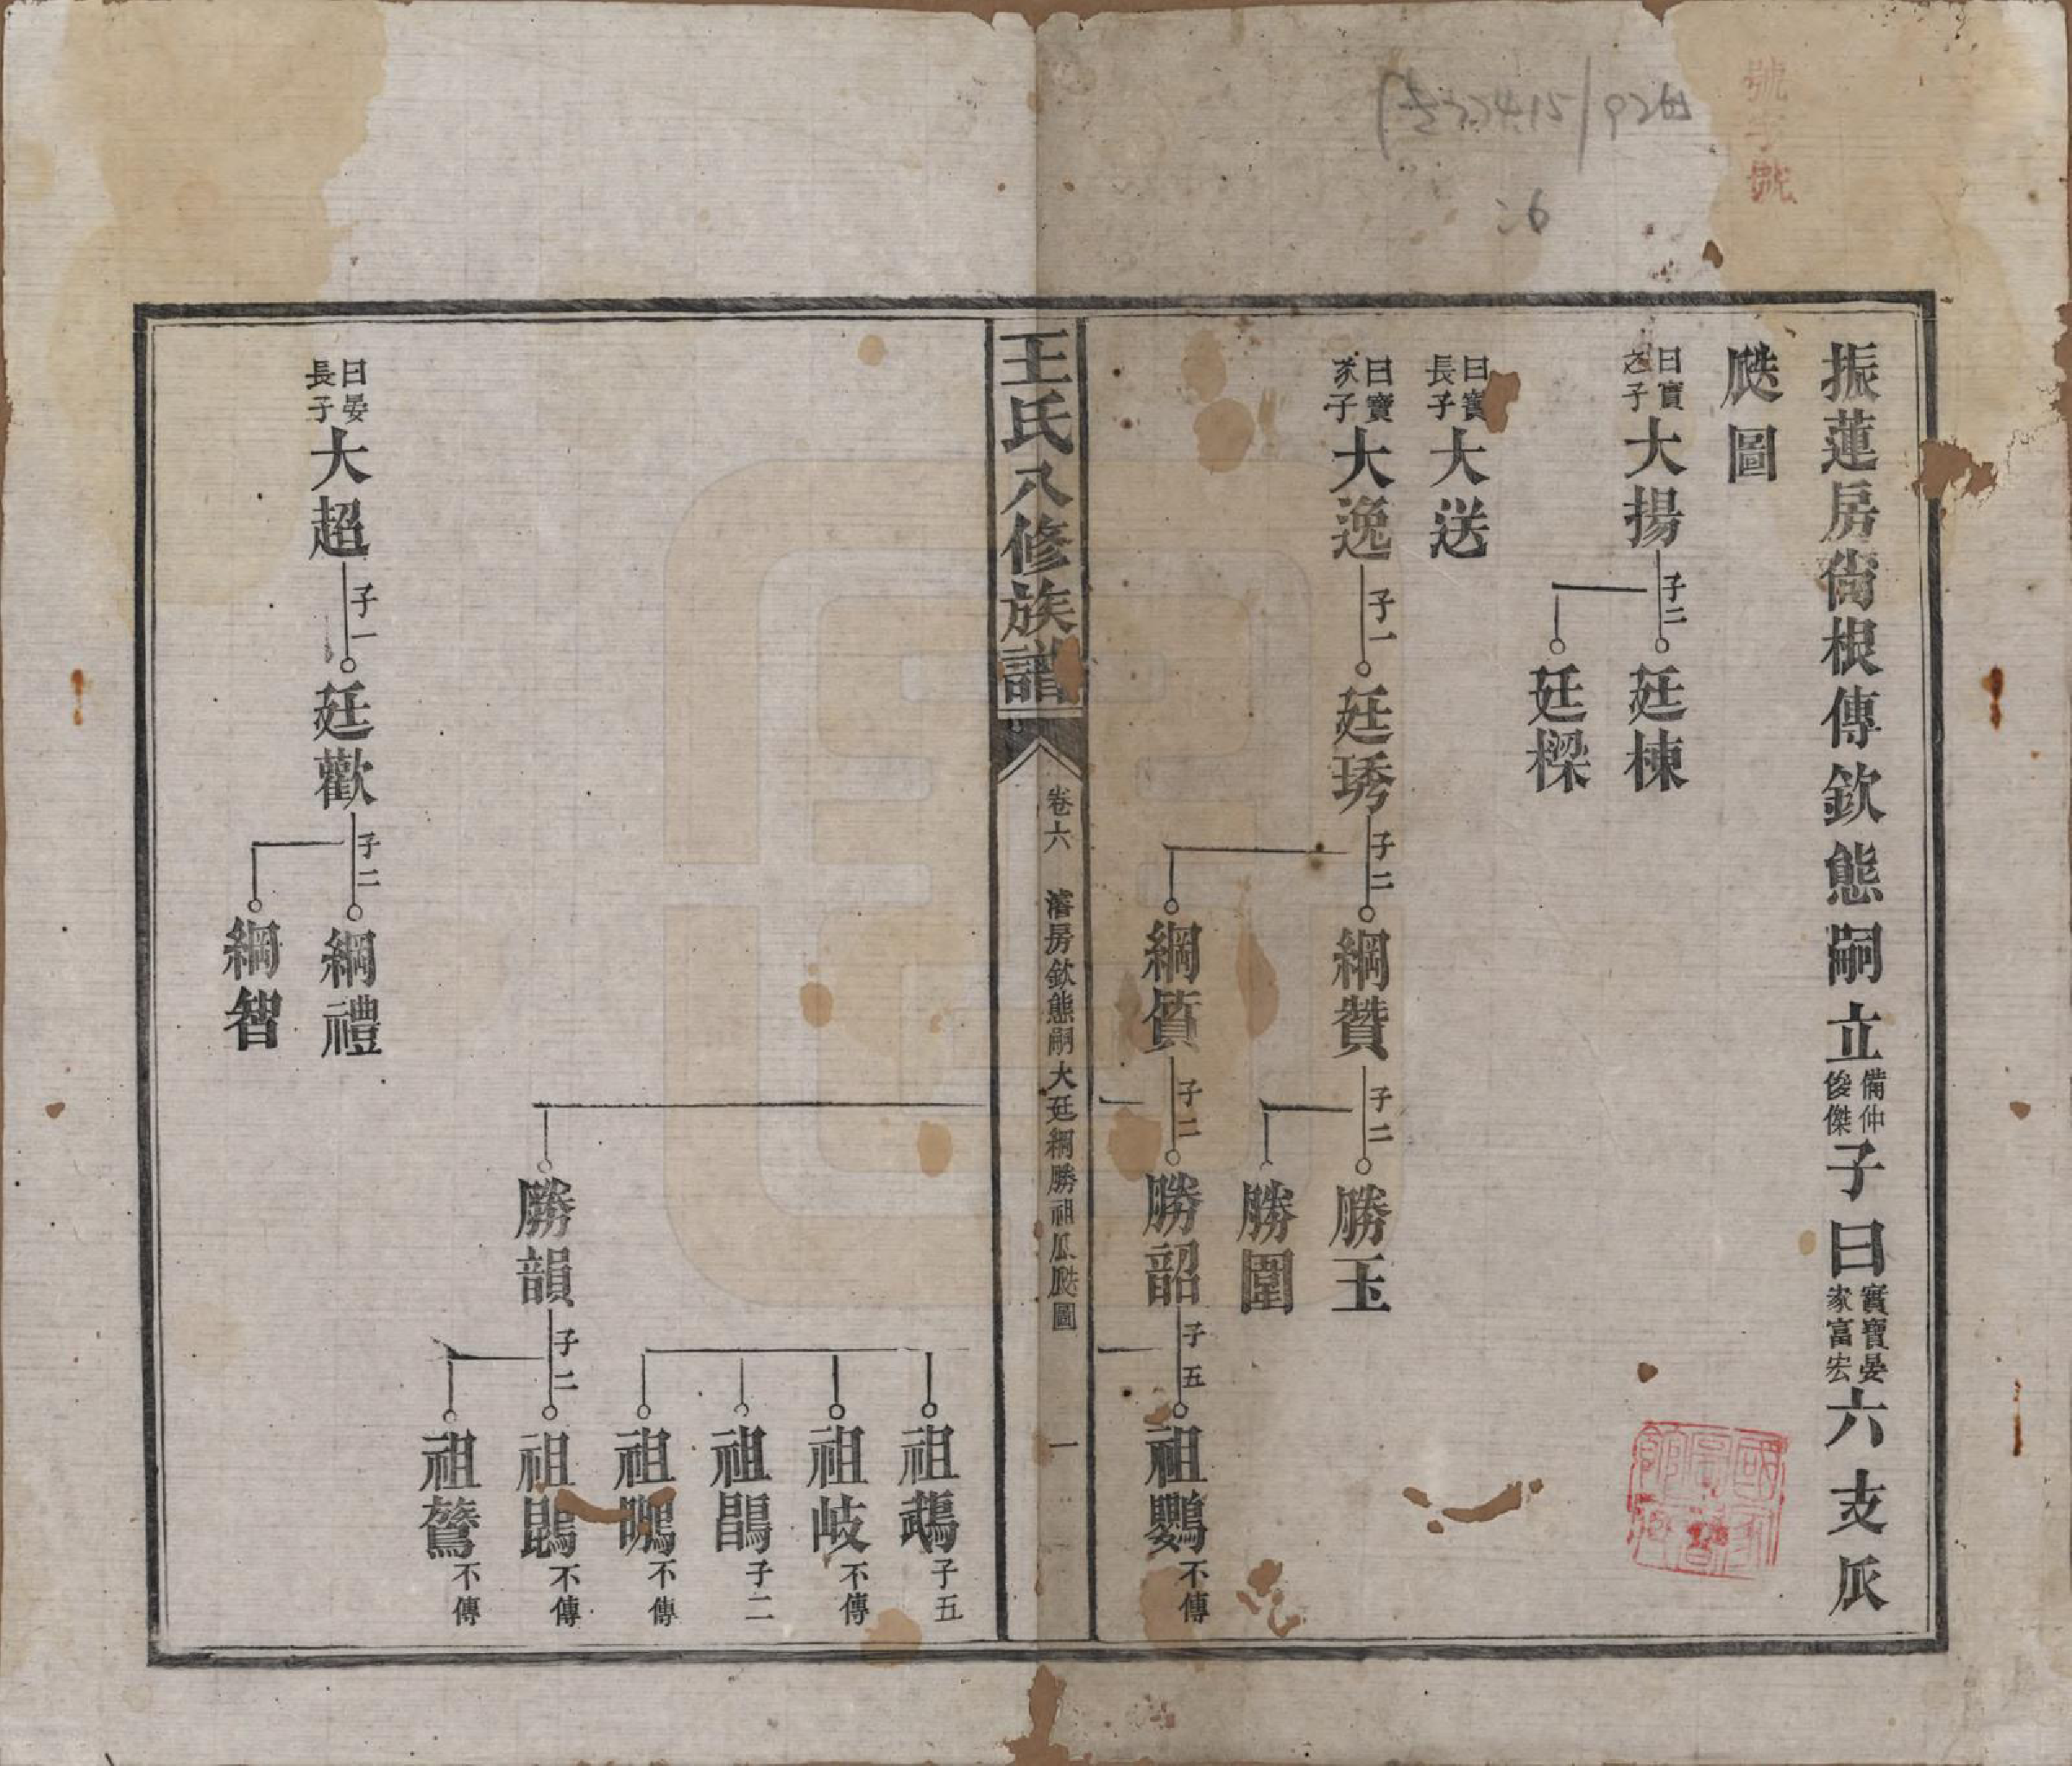 振蓮房尙根傳欽態嗣立備仲俊傑子曰實寶晏家富宏六支瓜
瓞圖
曰寶之子大揚 子二 廷棟
廷樑
曰實長子大送
曰寶家子大逸 子一 廷琇 子二 綱贊 子二 勝玉
勝圍
綱質 子二 勝韶 子五 祖鸚 不傳
王氏八修族譜 卷六 濬房欽態嗣大廷綱勝祖瓜瓞圖 一
祖鵡 子五
祖岐 不傳
祖鵑 子二
祖 不傳
勝韻 子二 祖鵾 不傳
祖鷟 不傳
曰晏長子大超 子一 廷歡 子二 綱禮
綱智